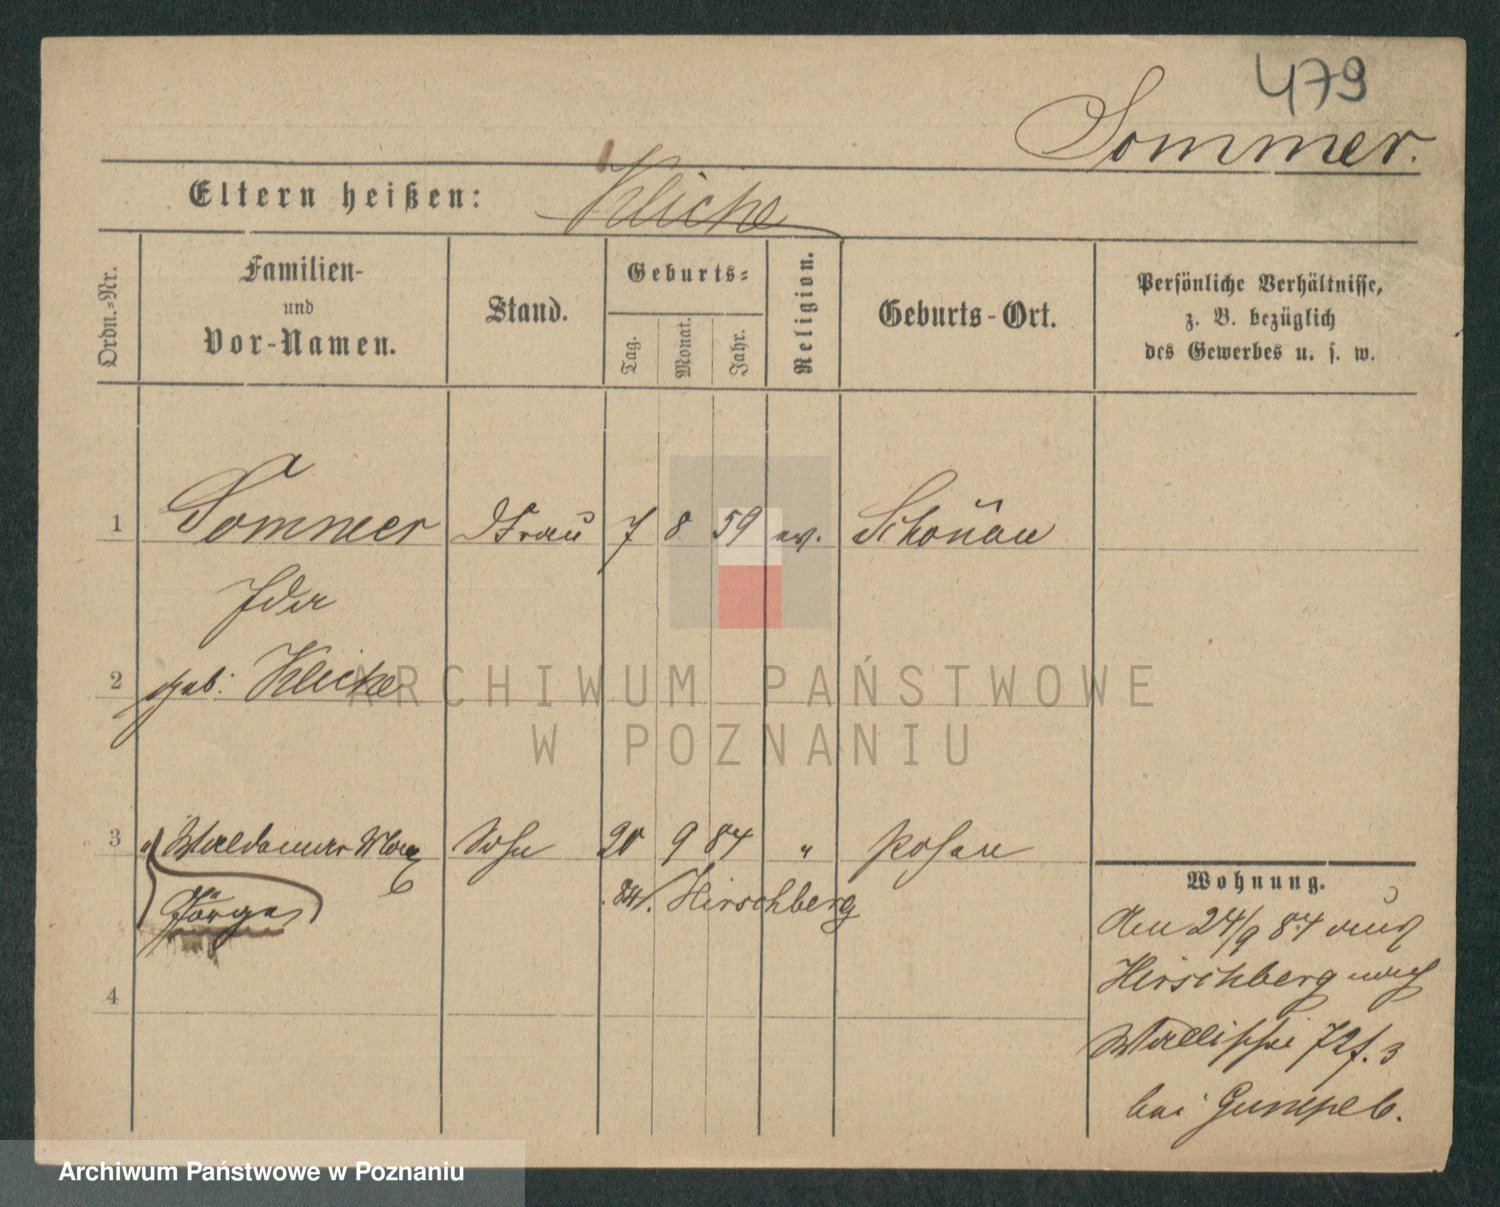 479
Sommer.
Eltern heißen: Klicke
Ordn.-Nr.
Familien-
und
Vor-Namen.
Stand.
Geburts-
Tag.
Monat.
Jahr.
Religion.
Geburts-Ort.
Persönliche Verhältnisse,
z. B. bezüglich
des Gewerbes u. s. w.
1 Sommer Frau 7 8 59 ev. Schönau
Ida
2 geb: Klicke
ARCHIWUM PAŃSTWOWE
W POZNANIU
3 " Waldemar Max Sohn 20 9 84 " Posen
Hirschberg
4
Wohnung.
Am 24/9 84 aus
Hirschberg nach
Wallischei 72 f. 3
bei Gumpel.
Archiwum Państwowe w Poznaniu